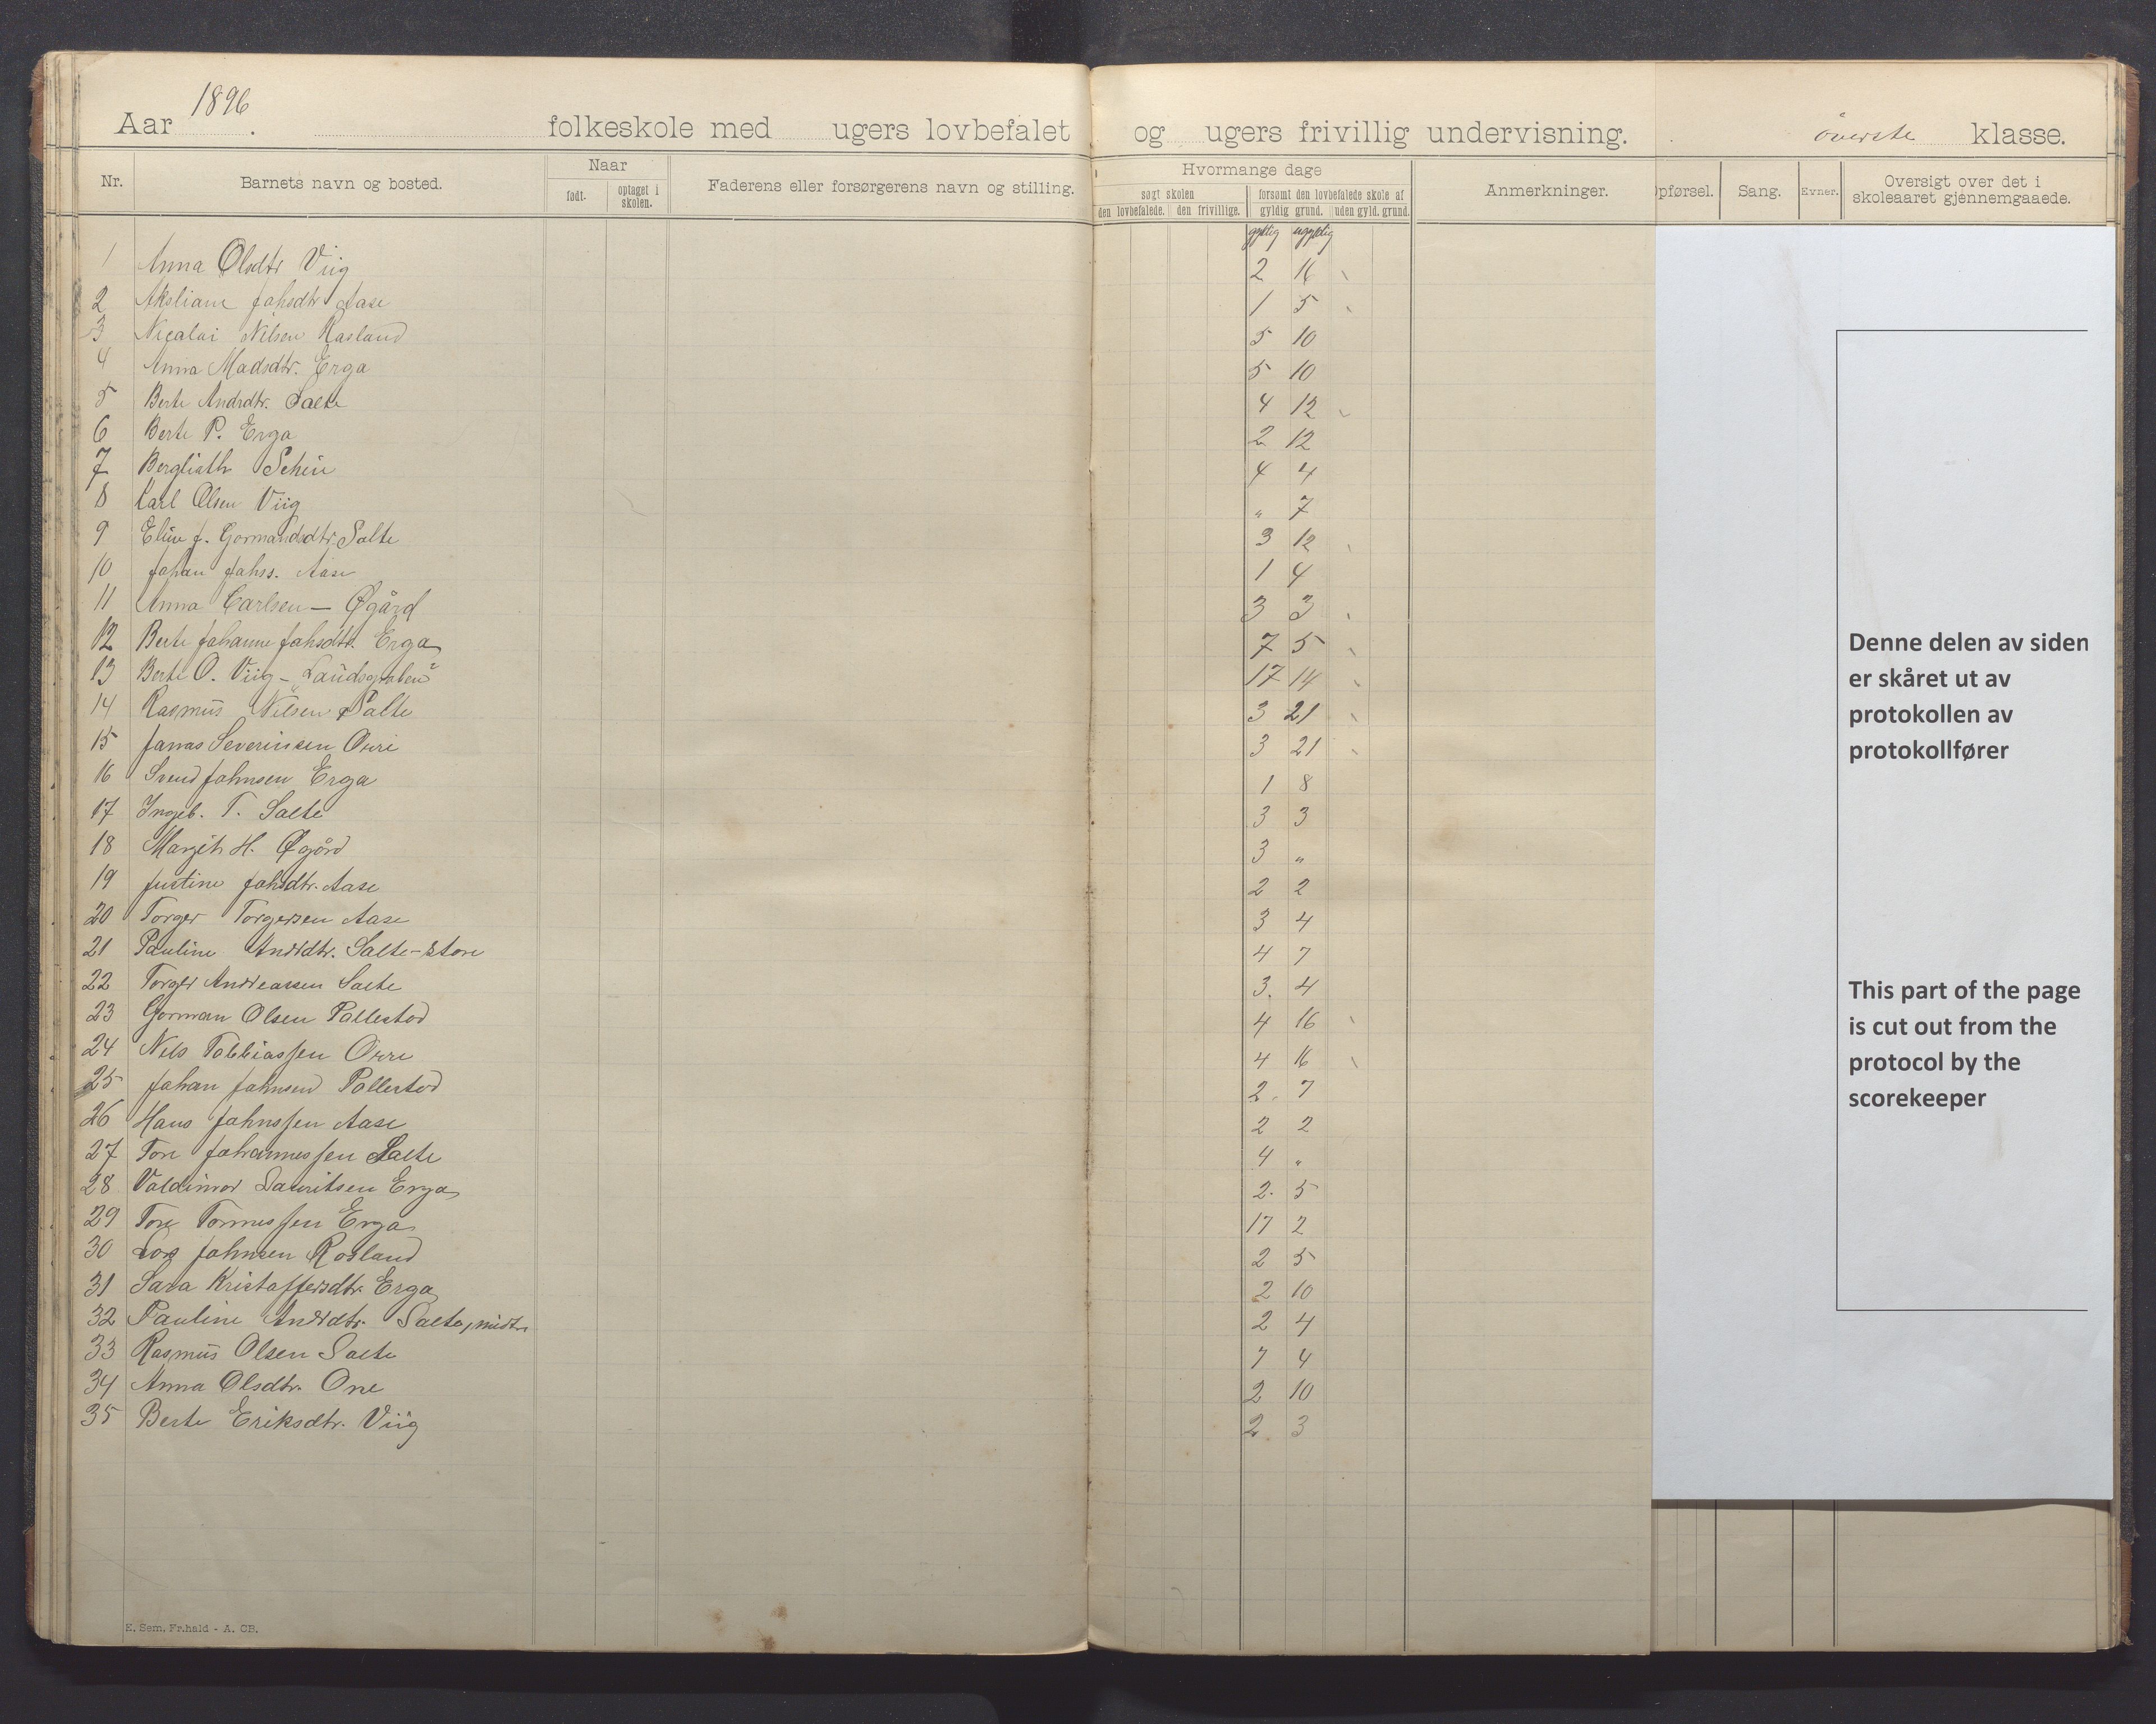 Aar 1896. folkeskole med ugers lovbefalet og ugers frivillig undervisning. øverste klasse.
Nr. Barnets navn og bosted. Naar født. optaget i skolen. Faderens eller forsørgerens navn og stilling. Hvormange dage søgt skolen den lovbefalede. den frivillige. forsømt den lovbefalede skole af gyldig grund. uden gyld. grund. Anmerkninger. Opførsel. Sang. Evner. Oversigt over det i skoleaaret gjennemgaaede.
gyldig ugyldig
1 Anna Olsdtr Viig 2 16
2 Aksliane Johsdtr Aase 1 5
3 Nicolai Nilsen Rasland 5 10
4 Anna Madsdtr. Erga 5 10
5 Berte Andrdtr. Salte 4 12
6 Berte P. Erga 2 12
7 Bergliath Schiu 4 4
8 Karl Olsen Viig " 7
9 Eline J. Gormandsdtr. Salte 3 12
10 Johan Johss. Aase 1 4
11 Anna Carlsen — Øgård 3 3
12 Berte Johanne Johsdtr. Erga 7 5
13 Berte O. Viig - „Landsgraben" 17 14
14 Rasmus Nilsen Salte 3 21
15 Jonas Severinsen Orre 3 21
16 Svend Johnsen Erga 1 8
17 Ingeb. T. Salte 3 3
18 Margit H. Øgård 3 "
19 Justine Johsdtr. Aase 2 2
20 Torger Torgersen Aase 3 4
21 Pauline Andrdtr. Salte-store 4 7
22 Torger Andreassen Salte 3. 4
23 Gorman Olsen Pollestad 4 16
24 Nils Tobbiassen Orre 4 16
25 Johan Johnsen Pollestad 2. 7
26 Hans Johnssen Aase 2 2
27 Tore Johannessen Salte 4 "
28 Valdimar Lauritsen Erga 2. 5
29 Tore Tønnessen Erga 17 2
30 Lars Johnsen Rosland 2 5
31 Sara Kristoffersdtr. Erga 2 10
32 Pauline Andrdtr. Salte, midtre 2 4
33 Rasmus Olsen Salte 7 4
34 Anna Olsdtr. Orre 2 10
35 Berte Eriksdtr. Viig 2. 3
E. Sem, Fr.hald - A. CB.
Denne delen av siden
er skåret ut av
protokollen av
protokollfører
This part of the page
is cut out from the
protocol by the
scorekeeper